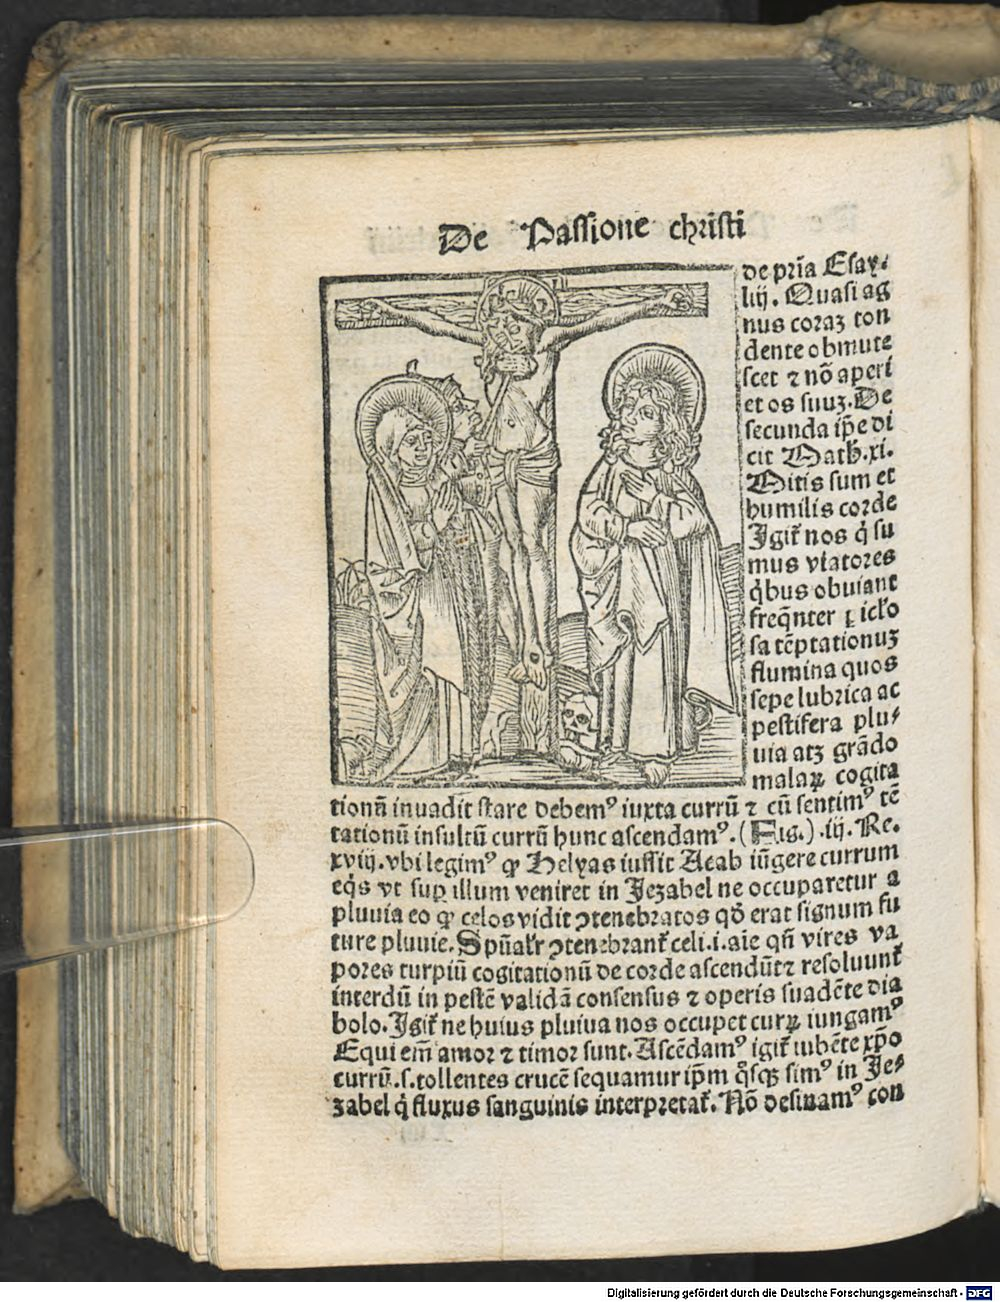 De Passione christi
de pr̄ia Esay.
liij. Quasi ag
nus coraꝫ ton
dente obmute
scet ⁊ nō aperi
et os suuꝫ. De
secunda ip̄e di
cit Math. xi.
Mitis sum et
humilis corde
Igit̄ nos q̇ su
mus viatores
q̇bus obuiant
freq̄nter ꝑiclo
sa tēptationuꝫ
flumina quos
sepe lubrica ac
pestifera plu⸗
uia atꝫ grādo
malaꝝ cogita
tionū inuadit stare debemꝰ iuxta currū ⁊ cū sentimꝰ tē
tationū insultū currū hunc ascendamꝰ. (Fig.) .iij. Re.
xviij. vbi legimꝰ ꝙ Helyas iussit Acab iūgere currum
eq̇s vt suꝑ illum veniret in Jezabel ne occuparetur a
pluuia eo ꝙ celos vidit ꝯtenebratos qđ erat signum fu
ture pluuie. Spūal̄r ꝯtenebrant̄ celi .i. aīe qn̄ vires va
pores turpiū cogitationū de corde ascendūt ⁊ resoluunt̄
interdū in pestē validā consensus ⁊ operis suadēte dia
bolo. Igit̄ ne huius pluiua nos occupet curꝝ iungamꝰ
Equi em̄ amor ⁊ timor sunt. Ascēdamꝰ igit̄ iubēte xp̄o
currū .s. tollentes crucē sequamur ip̄m q̇sqꝫ simꝰ in Je⸗
zabel q̇ fluxus sanguinis interpretat̄. Nō desinamꝰ con
Digitalisierung gefördert durch die Deutsche Forschungsgemeinschaft - DFG